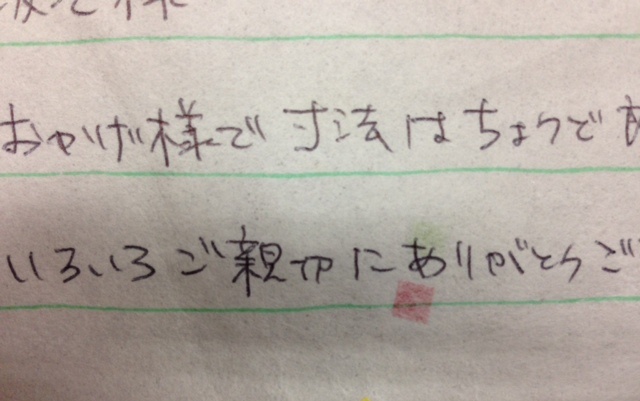 おかげ様で 寸法はちょうで
いろいろご親切にありがとうご